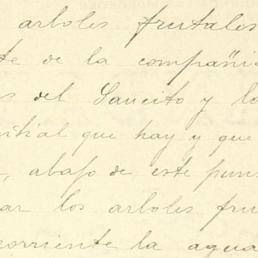 arboles frutales
te de la compañi
s del Saucito y lo
ntial que hay y que
, abajo de este pun
ar los arboles fru
corriente la agua